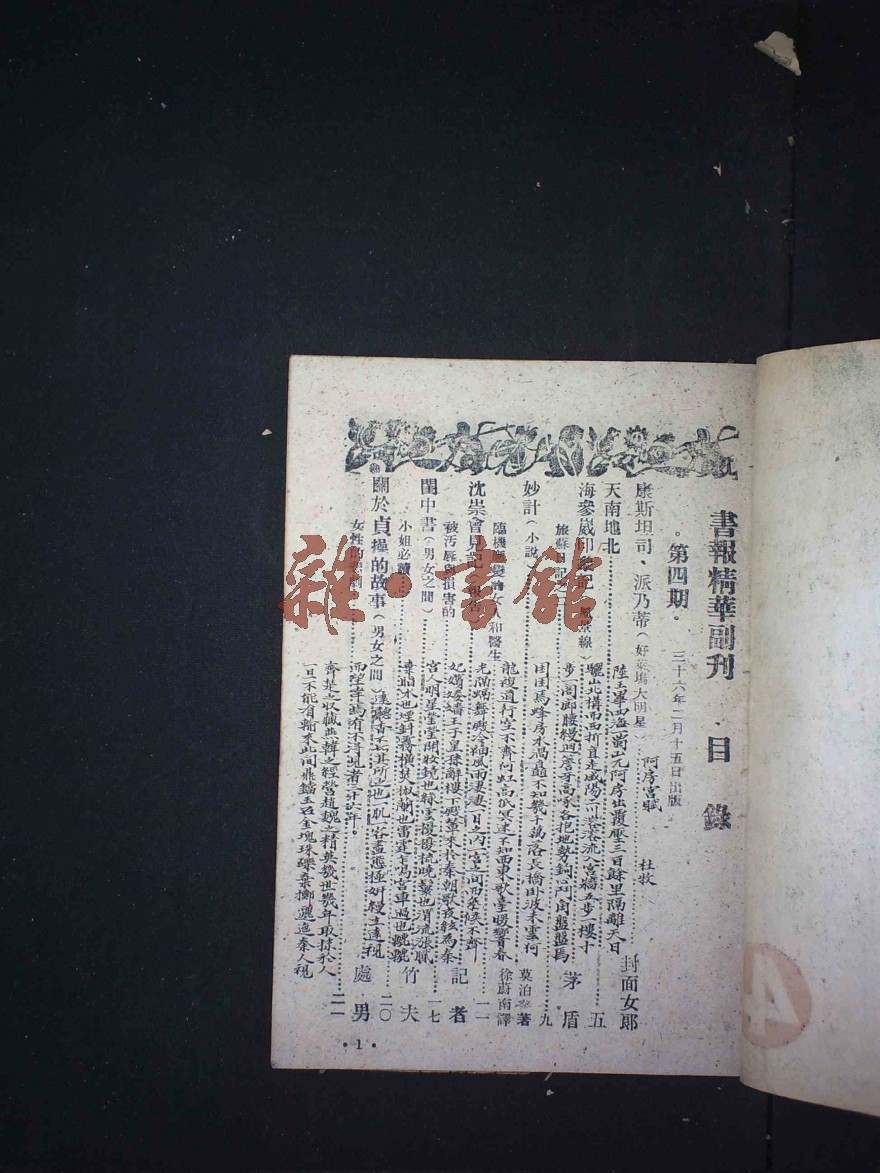 書報精華副刊 · 目錄
· 第四期 · 三十六年二月十五日出版
康斯坦司、派乃蒂（好萊塢大明星） 封面女郎
天南地北 五
海參崴印象記（風景線） 茅盾
旅蘇日記之一
妙計（小說） 莫泊桑著 徐蔚南譯 九
隨機應變的女人和醫生
沈崇會見記（報告） 記者 一一
被汚辱與損害的
閨中書（男女之間） 竹夫 一七
小姐必讀 二〇
關於貞操的故事（男女之間） 處男
女性的悲劇 二一
阿房宮賦 杜牧
陸王畢四海一蜀山兀阿房出覆壓三百餘里隔離天日
驪山北構而西折直走咸陽二川溶溶流入宮牆五步一樓十
步一閣腰縵迴簷牙高啄各抱地勢鈎心鬥角盤盤焉
囷囷焉蜂房水渦矗不知幾千萬落長橋臥波未雲何
龍複道行空不霽何虹高低冥迷不知西東歌臺暖響春
光融融舞殿冷袖風雨凄凄一日之內一宮之間而氣候不齊
妃嬪媵嬙王子皇孫辭樓下殿輦來於秦朝歌夜絃為秦
宮人明星熒熒開妝鏡也綠雲擾擾梳曉鬟也渭流漲膩
棄脂水也煙斜霧橫焚椒蘭也雷霆乍驚宮車過也轆轆
遠聽杳不知其所之也一肌一容盡態極妍縵立遠視
而望幸焉有不得見者三十六年。
齊楚之收藏燕韓之經營趙魏之精英幾世幾年取掠於人
一旦不能有輸來此間鼎鐺玉石金塊珠礫棄擲邐迤秦人視
· 1 ·
雜·書館